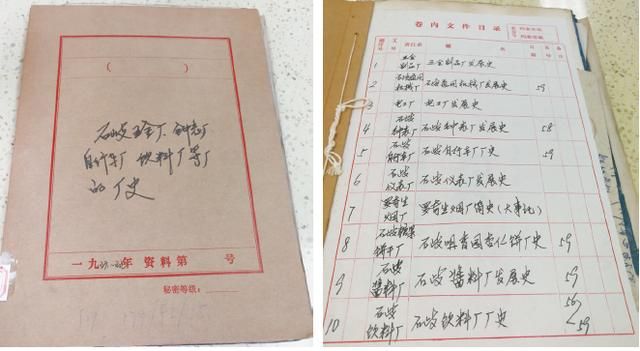 ( )
石岐五金厂、钟表厂
自行车厂 饮料厂等厂
的厂史
一九 年 资料第 号
秘密等级:
卷内文件目录
顺序号 文号 责任者 题名 日期 页号 备考
1 五金制品厂 五金制品厂发展史
2 石岐通用机械厂 石岐通用机械厂发展史 59
3 电工厂 电工厂发展史
4 石岐钟表厂 石岐钟表厂发展史 58
5 石岐自行车厂 石岐自行车厂厂史 59
6 石岐仪表厂 石岐仪表厂发展史
7 罗奇生烟厂 罗奇生烟厂简史(大事记)
8 石岐糖果饼干厂 石岐咀香园杏仁饼厂史 59
9 石岐酱料厂 石岐酱料厂发展史 59
10 石岐饮料厂 石岐饮料厂厂史 59